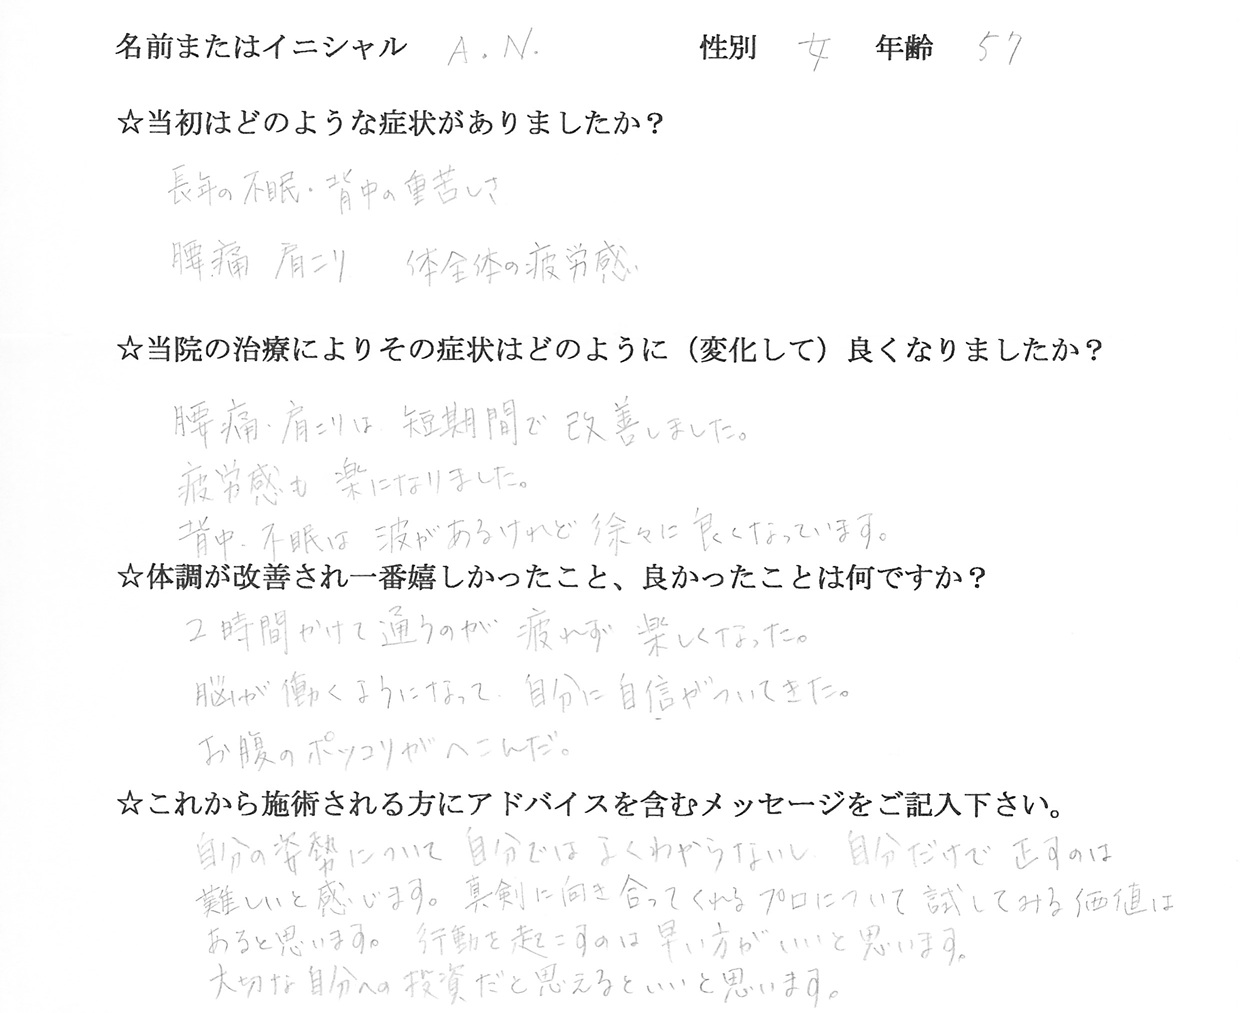 名前またはイニシャル A.N. 性別 女 年齢 57
☆当初はどのような症状がありましたか？
長年の不眠・背中の重苦しさ
腰痛 肩こり 体全体の疲労感
☆当院の治療によりその症状はどのように（変化して）良くなりましたか？
腰痛・肩こりは 短期間で 改善しました。
疲労感も 楽になりました。
背中・不眠は 波があるけれど 徐々に 良くなっています。
☆体調が改善され一番嬉しかったこと、良かったことは何ですか？
2時間かけて通うのが 疲れず 楽しくなった。
脳が 働くようになって、自分に 自信がついてきた。
お腹のポッコリが へこんだ。
☆これから施術される方にアドバイスを含むメッセージをご記入下さい。
自分の姿勢について 自分では よくわからないし、自分だけで 正すのは
難しいと感じます。真剣に向き合ってくれるプロについて 試してみる価値は
あると思います。 行動を起こすのは 早い方がいいと思います。
大切な自分への投資だと思えるといいと思います。